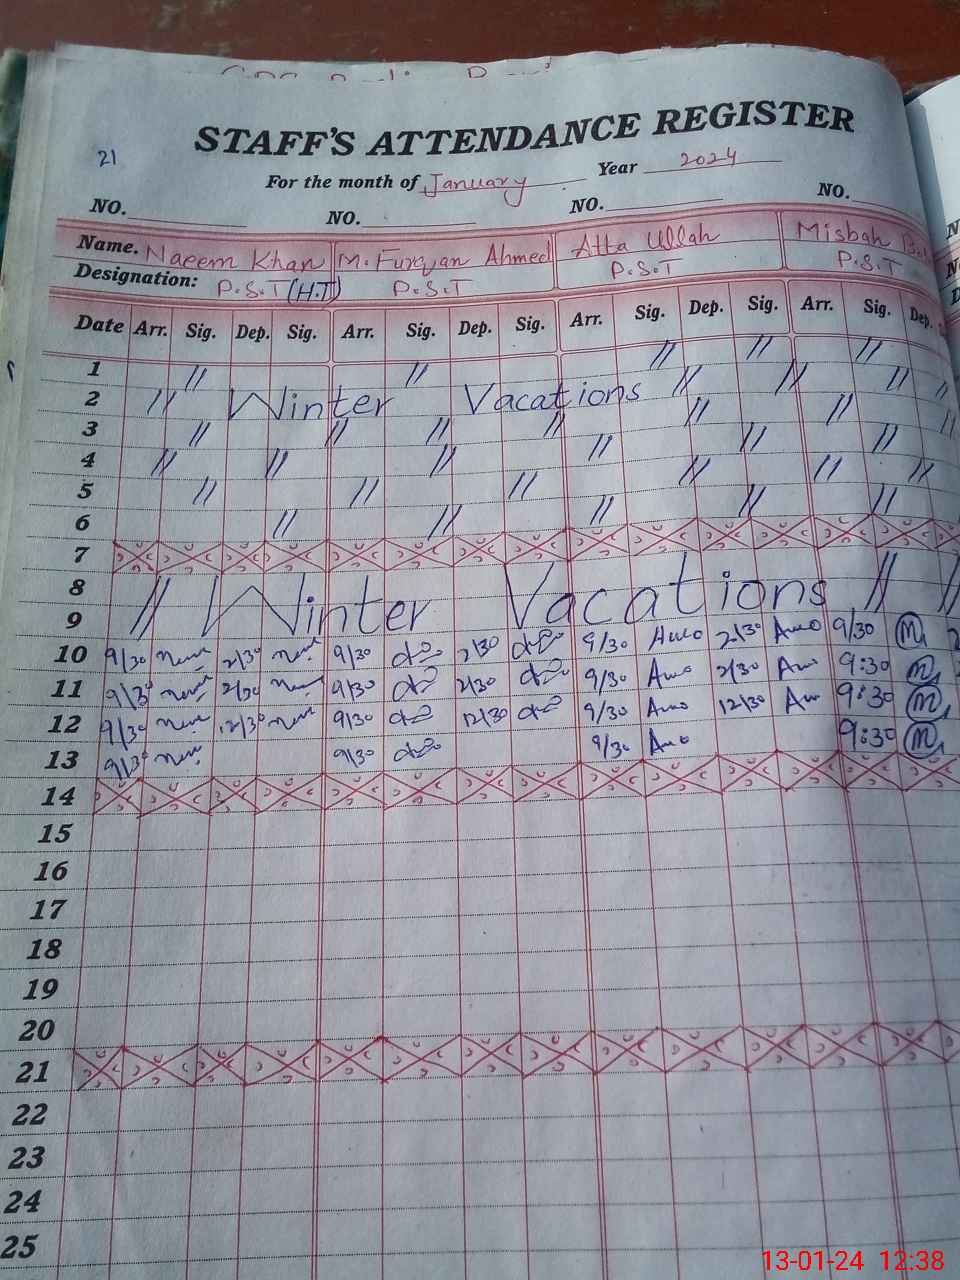 21
STAFF'S ATTENDANCE REGISTER
For the month of January Year 2024
NO. NO. NO. NO.
Name. Naeem Khan M. Furqan Ahmed Atta Ullah Misbah
Designation: P.S.T (H.T) P.S.T P.S.T P.S.T
Date Arr. Sig. Dep. Sig. Arr. Sig. Dep. Sig. Arr. Sig. Dep. Sig. Arr. Sig. Dep.
1 // // // // //
2 // Winter Vacations // // // //
3 // // // // // // //
4 // // // // // //
5 // // // // // //
6 // // // // //
7
8
9 // Winter Vacations // //
10 9/30 2/30 9/30 2/30 9/30 2/30 9/30
11 9/30 2/30 9/30 2/30 9/30 2/30 9:30
12 9/30 12/30 9/30 12/30 9/30 12/30 9:30
13 9/30 9/30 9/30 9:30
14
15
16
17
18
19
20
21
22
23
24
25
13-01-24 12:38